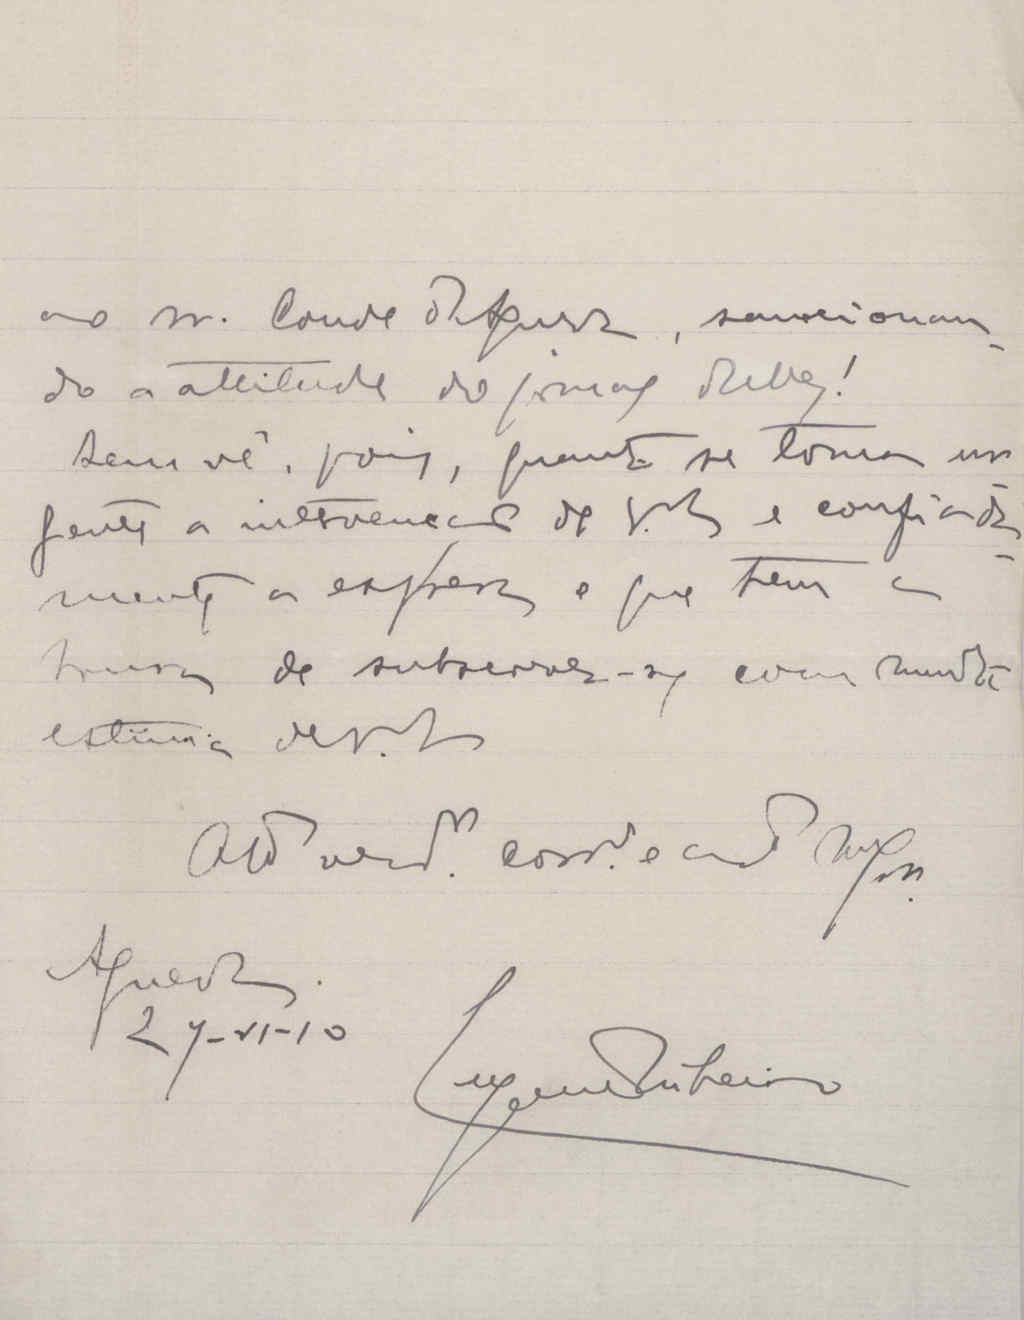 ao sr. Conde d'Agueda, sanccionan-
do a attitude do jornal d'elle!
bem vê, pois, quanto se torna ur
gente a intervenção de V. Ex e confiada-
mente a espera e que tem a
honra de subscrever-se com muita
estima de V. Ex
Att.º ven.dor corr.º e cr.do m.to
Agueda.
27-VI-10
Eugenio Ribeiro